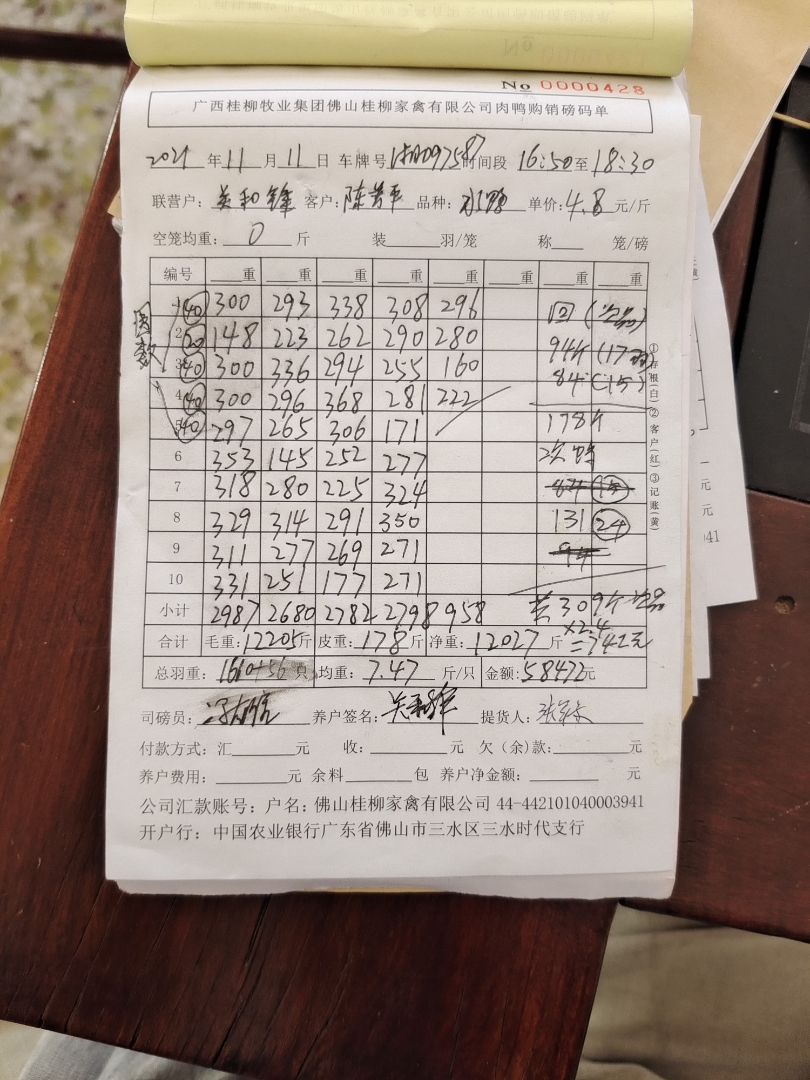 No 0000428
广西桂柳牧业集团佛山桂柳家禽有限公司肉鸭购销磅码单
2021年11月11日 车牌号 时间段 16:50至18:30
联营户: 客户: 品种: 单价:4.8元/斤
空笼均重: 0 斤 装 羽/笼 称 笼/磅
编号 重 重 重 重 重 重 重 重
1 40 300 293 338 308 296 回
2 20 148 223 262 290 280 94斤(17
3 40 300 336 294 255 160 84(15)
4 40 300 296 368 281 222
5 40 297 265 306 171 178斤
6 353 145 252 277 次
7 318 280 225 324
8 329 314 291 350 131 24
9 311 277 269 271 94
10 331 251 177 271
小计 2987 2680 2782 2798 958 共309斤
×2.4
合计 毛重:12205斤 皮重:178斤 净重:12027斤 =742元
总羽重: 1610+56只 均重: 7.47 斤/只 金额:58472元
司磅员: 养户签名: 提货人:
付款方式:汇 元 收: 元 欠(余)款: 元
养户费用: 元 余料 包 养户净金额: 元
公司汇款账号:户名:佛山桂柳家禽有限公司 44-442101040003941
开户行:中国农业银行广东省佛山市三水区三水时代支行
①存根(白)②客户(红)③记账(黄)